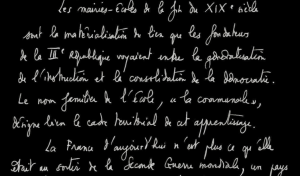 Les mairies-école de la fin du XIXe siècle
sont la matérialisation du lien que les fondateurs
de la IIIe République voyaient entre la généralisation
de l'instruction et la consolidation de la démocratie.
Le nom familier de l'École, « la communale »,
désigne bien le cadre territorial de cet apprentissage.
La France d'aujourd'hui n'est plus ce qu'elle
était au sortir de la Seconde Guerre mondiale, un pays